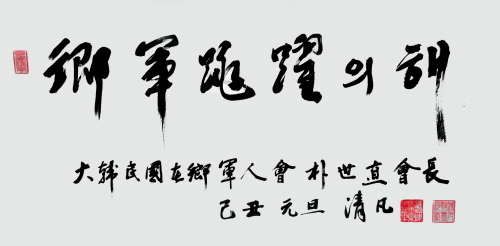 鄕軍跳躍의해
大韓民國在鄕軍人會 朴世直會長
己丑 元旦 清凡